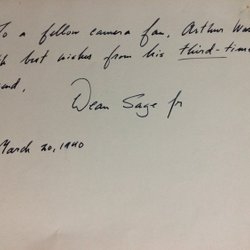 To a fellow camera fan, Arthur
best wishes from his third-time
Dean Sage Jr
March 20, 1940